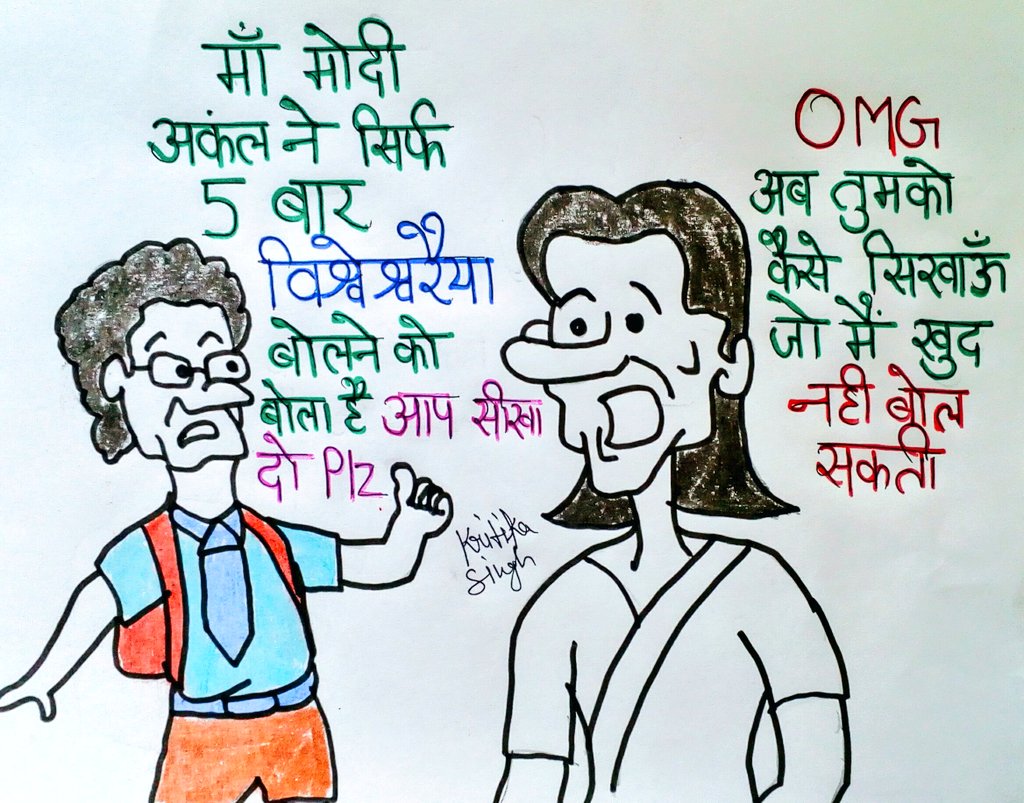 माँ मोदी
अकंल ने सिर्फ
5 बार
विश्वेश्वरैया
बोलने को
बोला है आप सीखा
दो Plz
OMG
अब तुमको
कैसे सिखाऊँ
जो मैं खुद
नही बोल
सकती
Kritika
Singh